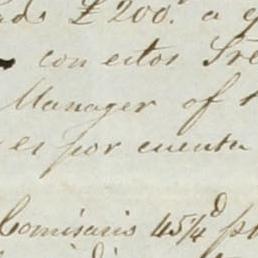 £200. a
con estos Sre
Manager of
es por cuenta
Comisaris 45¼d p